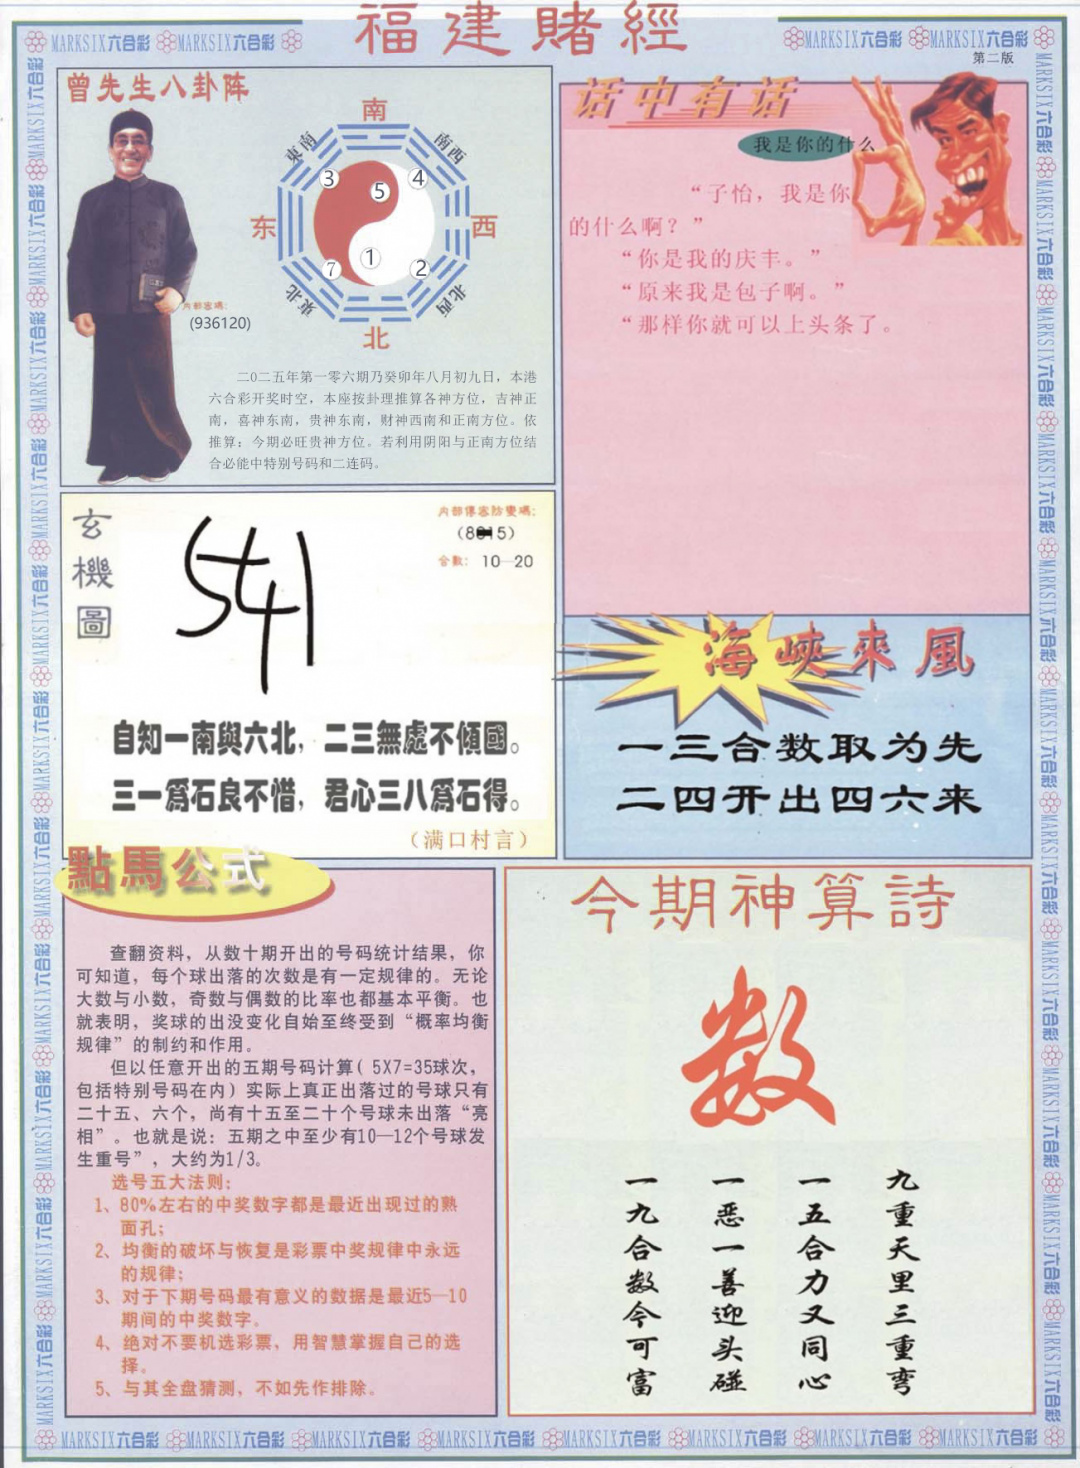 福建賭經
MARKSIX六合彩 MARKSIX六合彩
MARKSIX六合彩 MARKSIX六合彩
第二版
曾先生八卦阵
南
東南
南西
3
5
4
东
西
7
1
2
東北
北西
北
内部密碼:
(936120)
二0二五年第一零六期乃癸卯年八月初九日，本港
六合彩开奖时空，本座按卦理推算各神方位，吉神正
南，喜神东南，贵神东南，财神西南和正南方位。依
推算：今期必旺贵神方位。若利用阴阳与正南方位结
合必能中特别号码和二连码。
话中有话
我是你的什么
“子怡，我是你
的什么啊？”
“你是我的庆丰。”
“原来我是包子啊。”
“那样你就可以上头条了。
玄機圖
541
内部傳密防變碼:
合數: 10—20
自知一南與六北，二三無處不傾國。
三一爲石良不惜，君心三八爲石得。
（满口村言）
海峽來風
一三合数取为先
二四开出四六来
點馬公式
查翻资料，从数十期开出的号码统计结果，你
可知道，每个球出落的次数是有一定规律的。无论
大数与小数，奇数与偶数的比率也都基本平衡。也
就表明，奖球的出没变化自始至终受到“概率均衡
规律”的制约和作用。
但以任意开出的五期号码计算( 5X7=35球次，
包括特别号码在内）实际上真正出落过的号球只有
二十五、六个，尚有十五至二十个号球未出落“亮
相”。也就是说：五期之中至少有10—12个号球发
生重号”，大约为1/3。
选号五大法则:
1、80%左右的中奖数字都是最近出现过的熟
面孔;
2、均衡的破坏与恢复是彩票中奖规律中永远
的规律;
3、对于下期号码最有意义的数据是最近5—10
期间的中奖数字。
4、绝对不要机选彩票，用智慧掌握自己的选
择。
5、与其全盘猜测，不如先作排除。
今期神算詩
数
九重天里三重弯
一五合力又同心
一恶一善迎头碰
一九合数今可富
MARKSIX六合彩 MARKSIX六合彩 MARKSIX六合彩 MARKSIX六合彩 MARKSIX六合彩 MARKSIX六合彩 MARKSIX六合彩 MARKSIX六合彩